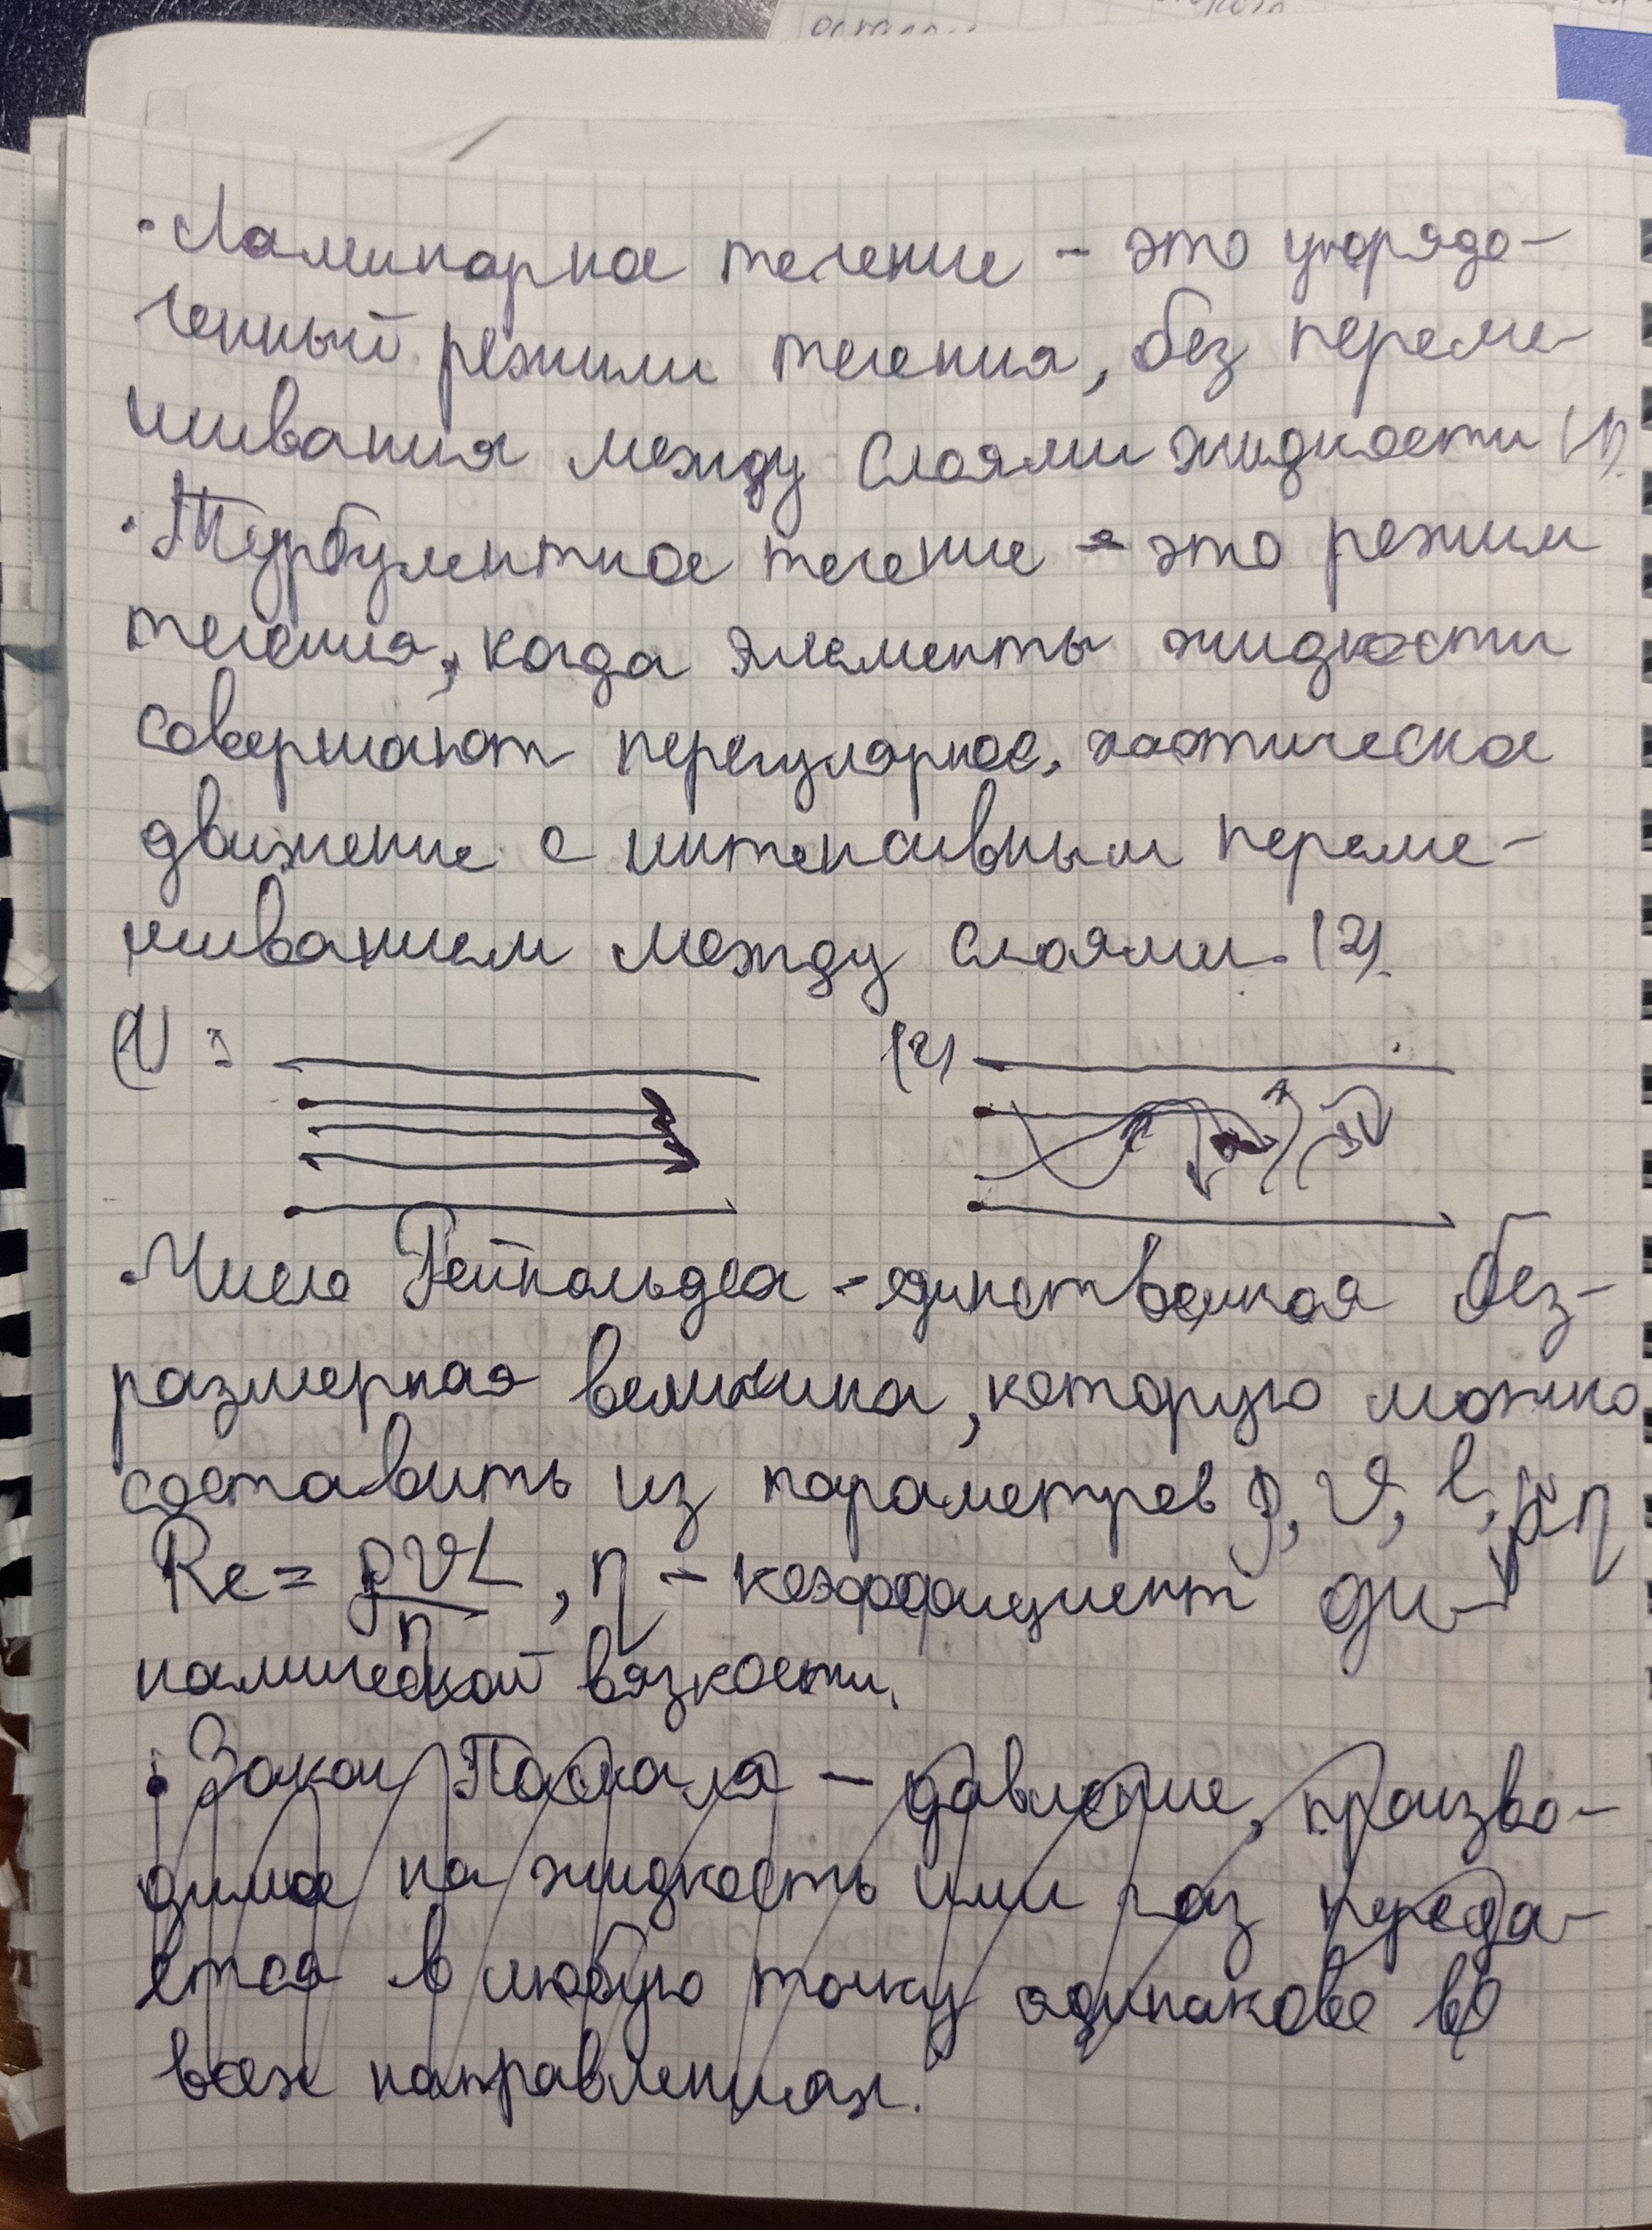 · Ламинарное течение - это упорядо-
ченный режим течения, без переме-
шивания между слоями жидкости (1).
· Турбулентное течение - это режим
течения, когда элементы жидкости
совершают нерегулярное, хаотическое
движение с интенсивным переме-
шиванием между слоями. (2).
(1): (2)
· Число Рейнольдса - единственная без-
размерная величина, которую можно
составить из параметров ρ, v, l, η
Re = ρvL/η, η - коэффициент ди-
намической вязкости.
· Закон Паскаля - давление, произво-
димое на жидкость или газ переда-
ётся в любую точку одинаково во
всех направлениях.